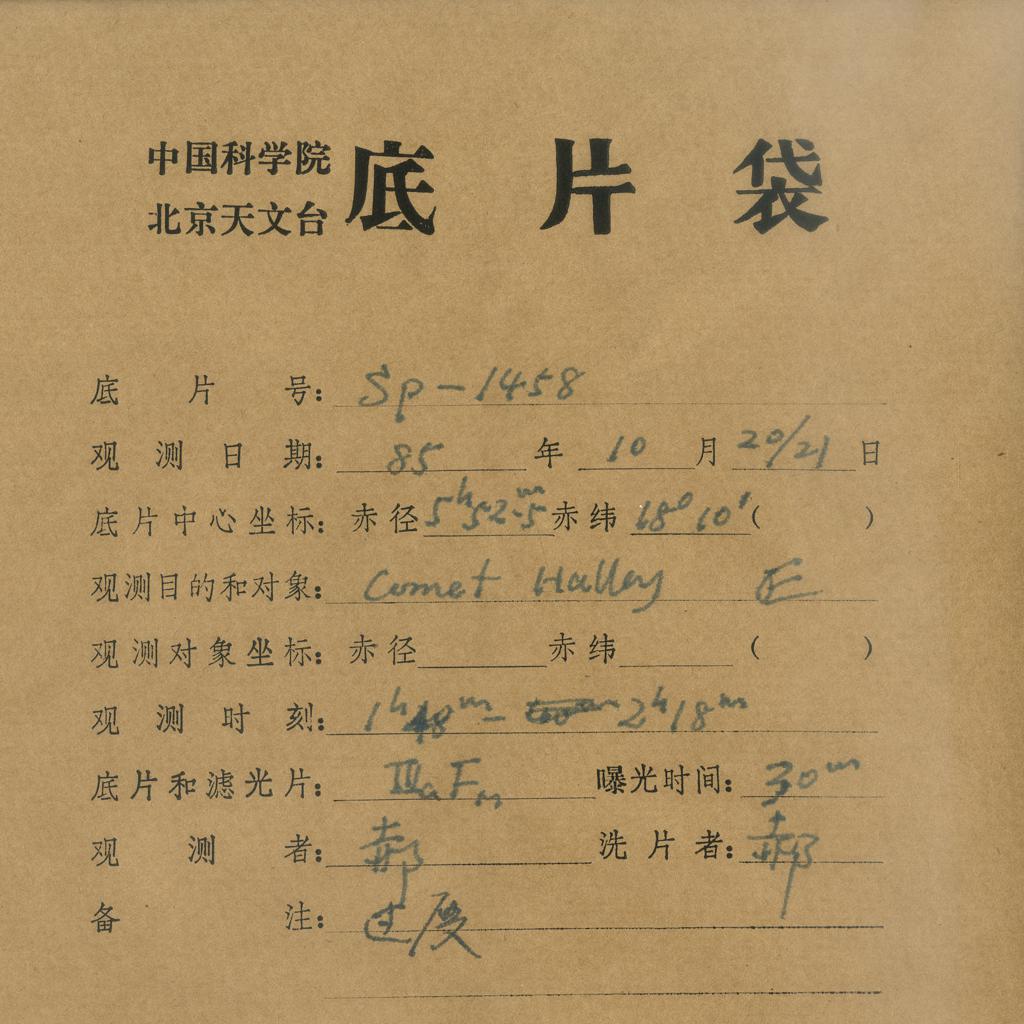 中国科学院
北京天文台
底片袋
底片号: Sp-1458
观测日期: 85 年 10 月 20/21 日
底片中心坐标: 赤径 5h52m.5 赤纬 18° 10′ ( )
观测目的和对象: Comet Halley E
观测对象坐标: 赤径 赤纬 ( )
观测时刻: 1h48m - 2h18m
底片和滤光片: IIIaF 曝光时间: 30m
观测者: 郝 洗片者: 郝
备注: 过度